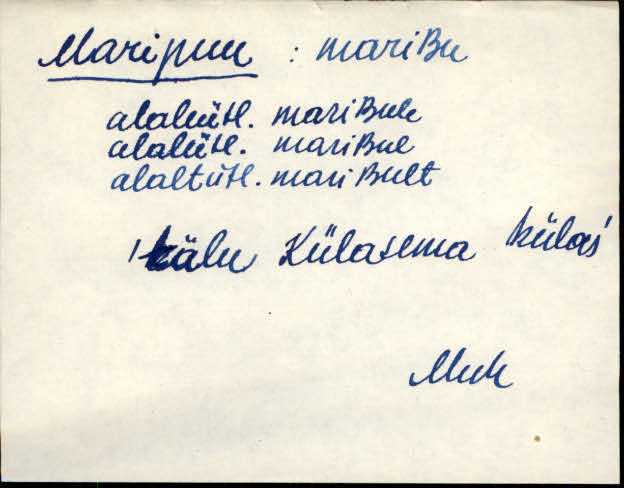 Maripuu : mariʙu
alalütl. mariʙule
alalütl. mariʙul
alaltütl. mariʙult
Külasema külaś
Muh